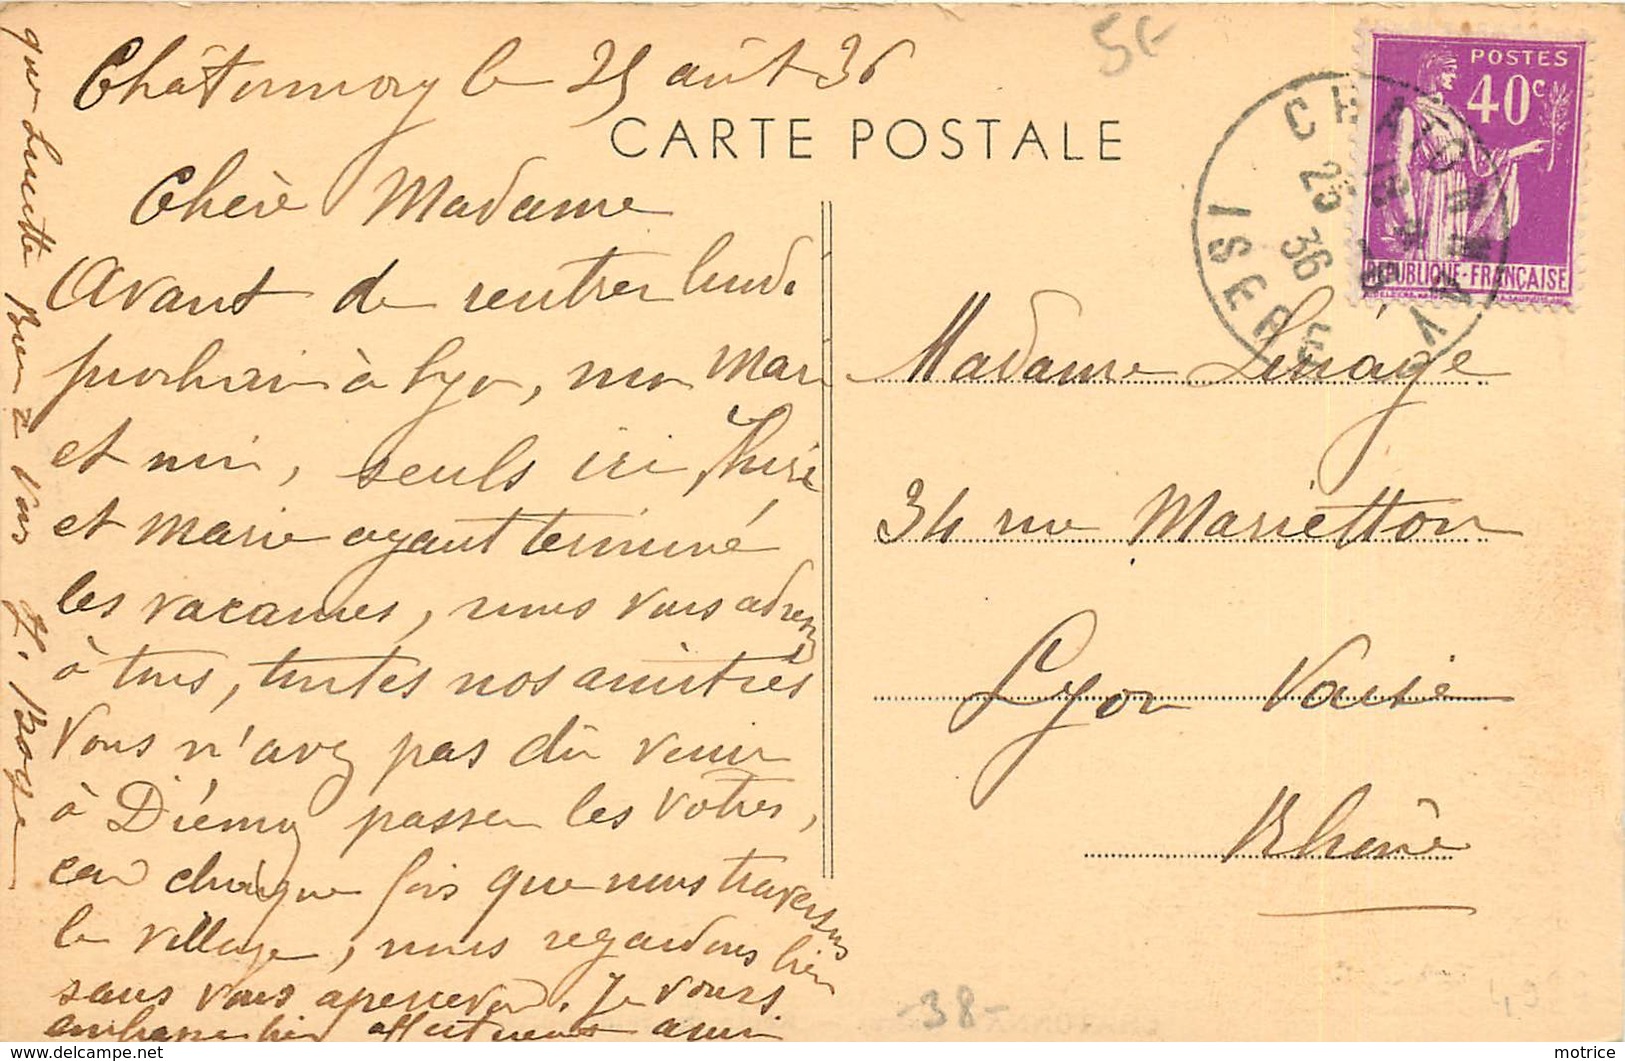 5€
Châtonnay le 25 août 36
CARTE POSTALE
POSTES
40c
REPUBLIQUE-FRANÇAISE
CHATONNAY
25
36
ISERE
Chère Madame
Avant de rentrer lundi
prochain à Lyon, mon mari
et moi, seuls ici,
et Marie ayant terminé
les vacances, nous vous adressons
à tous, toutes nos amitiés
Vous n'avez pas dû venir
à Diémoz passer les votres,
car chaque fois que nous traversons
le village, nous regardons bien
sans vous apercevoir. Je vous
embrasse bien affectueusement ainsi
que Lucette Bien à vous
Madame Lesage
34 rue Marietton
Lyon Vaise
Rhône
-38-
49
motrice
Delcampe.net